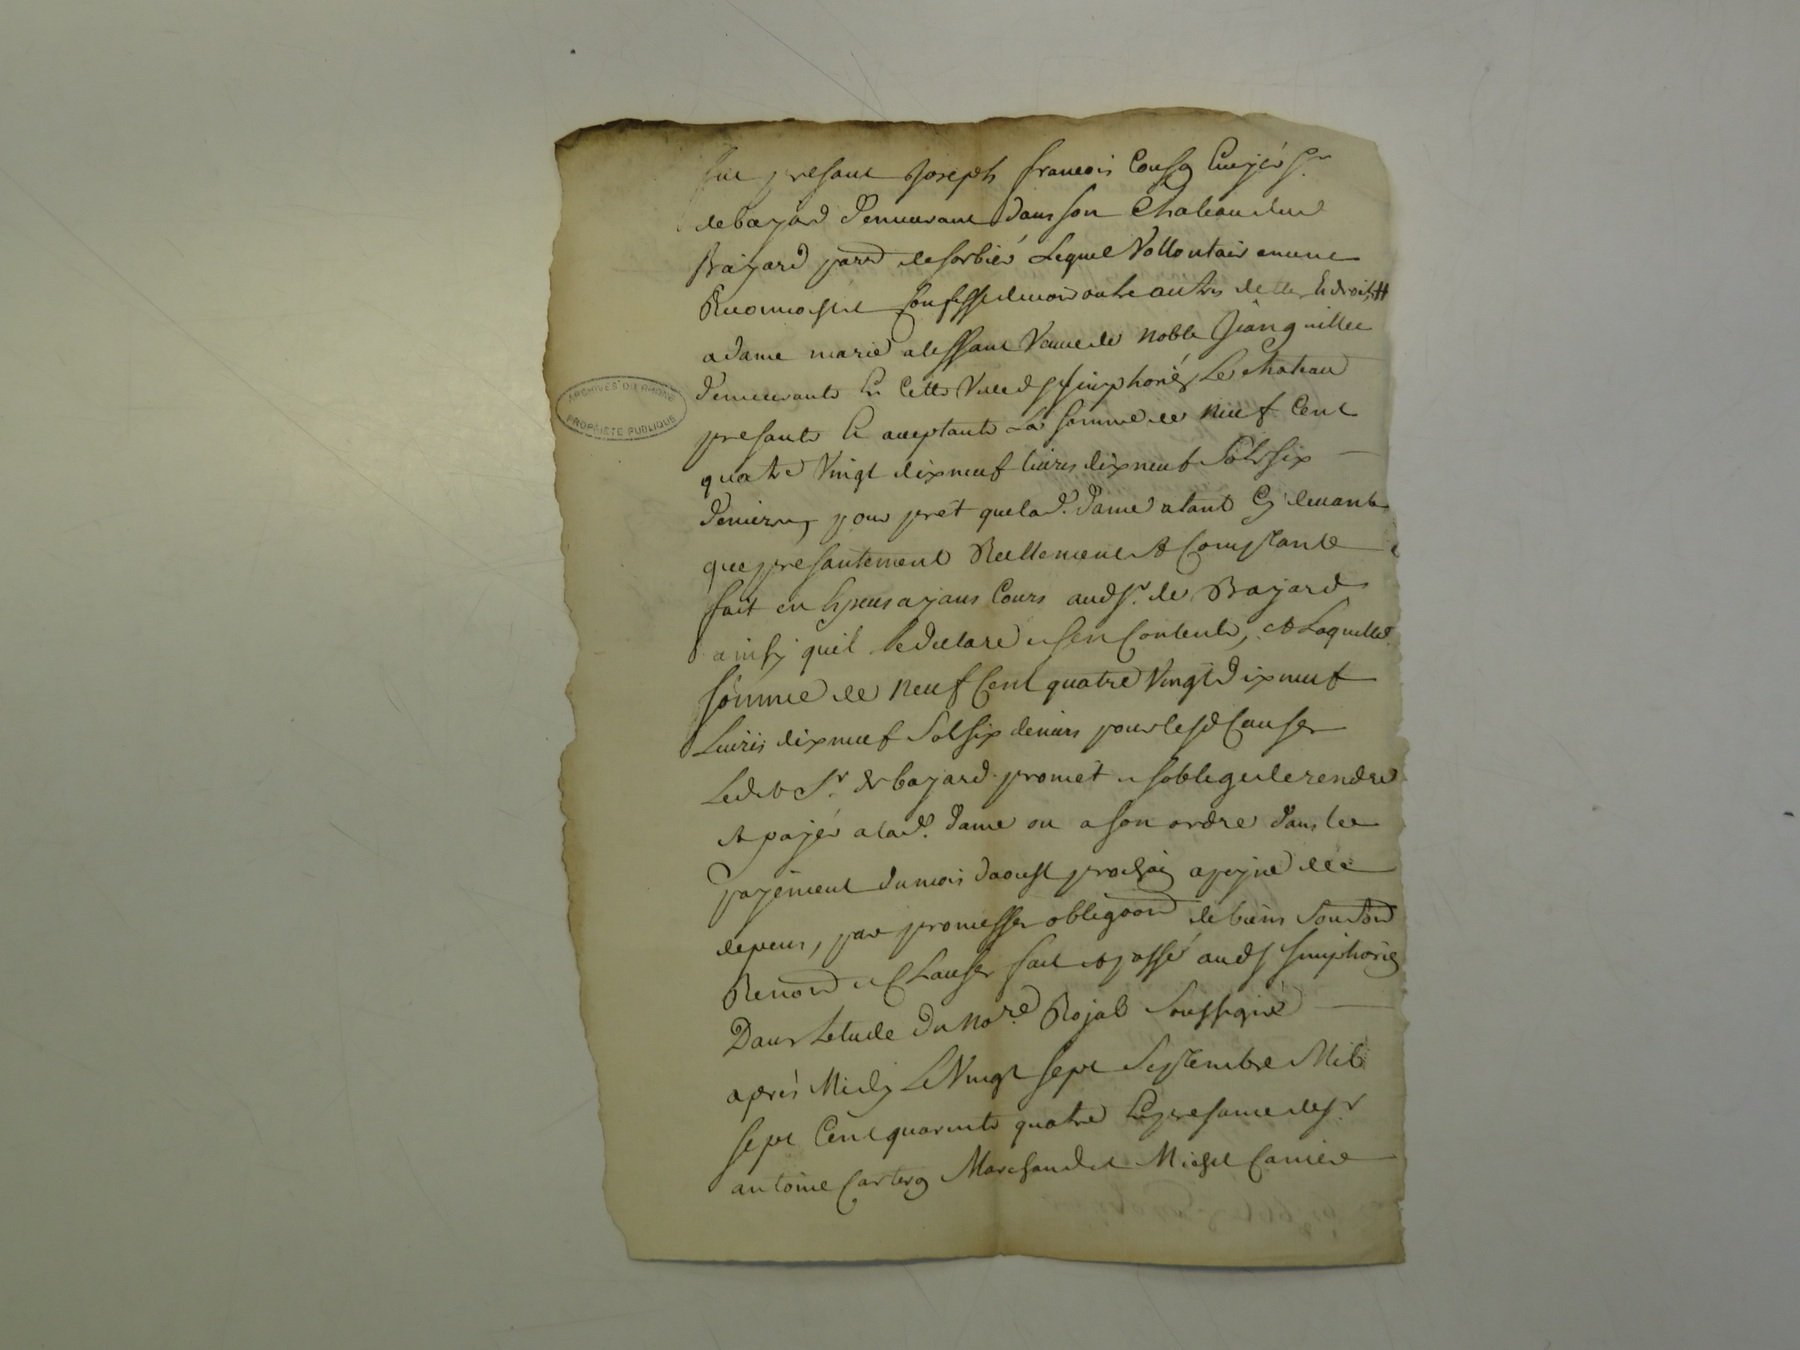 fut presant Joseph francois Ecuyer Sr.
de bayard demeurant dans son chateau dud
Bayard parr de sorbier Lequel Vollontairement
Reconnoist et Confesse devoir outre autres dettes Et droits #
a dame marie alessant Veuve de noble
demeurante En cette Ville de St simphorien Le chateau
presante Et acceptante La somme de neuf Cent
quatre Vingt dixneuf livres dixneuf Sols six
deniers, pour prêt que lad. dame atant cy devant
que presantement Reellement et Comptant
fait en Especes ayans Cours aud Sr. de Bayard
ainsy quil le declare et sen Contente, et Laquelle
somme de neuf Cent quatre Vingt Dixneuf
Livres dixneuf Sols six deniers pour lesd Causes
Ledit Sr. de bayard promet et soblige de rendre
et payer a lad. dame ou a son ordre dans les
payement du mois daoust prochain a peyne de
depens, par promesses obligaon de biens
Renond et Clauses fait et passé aud St simphorien
Dans Letude du nore. Royal Soussigné
après Midy Le Vingt sept Septembre Mil
sept Cent quarente quatre En presance de Sr.
antoine Marchand et Michel
ARCHIVES DU RHONE
PROPRIETE PUBLIQUE